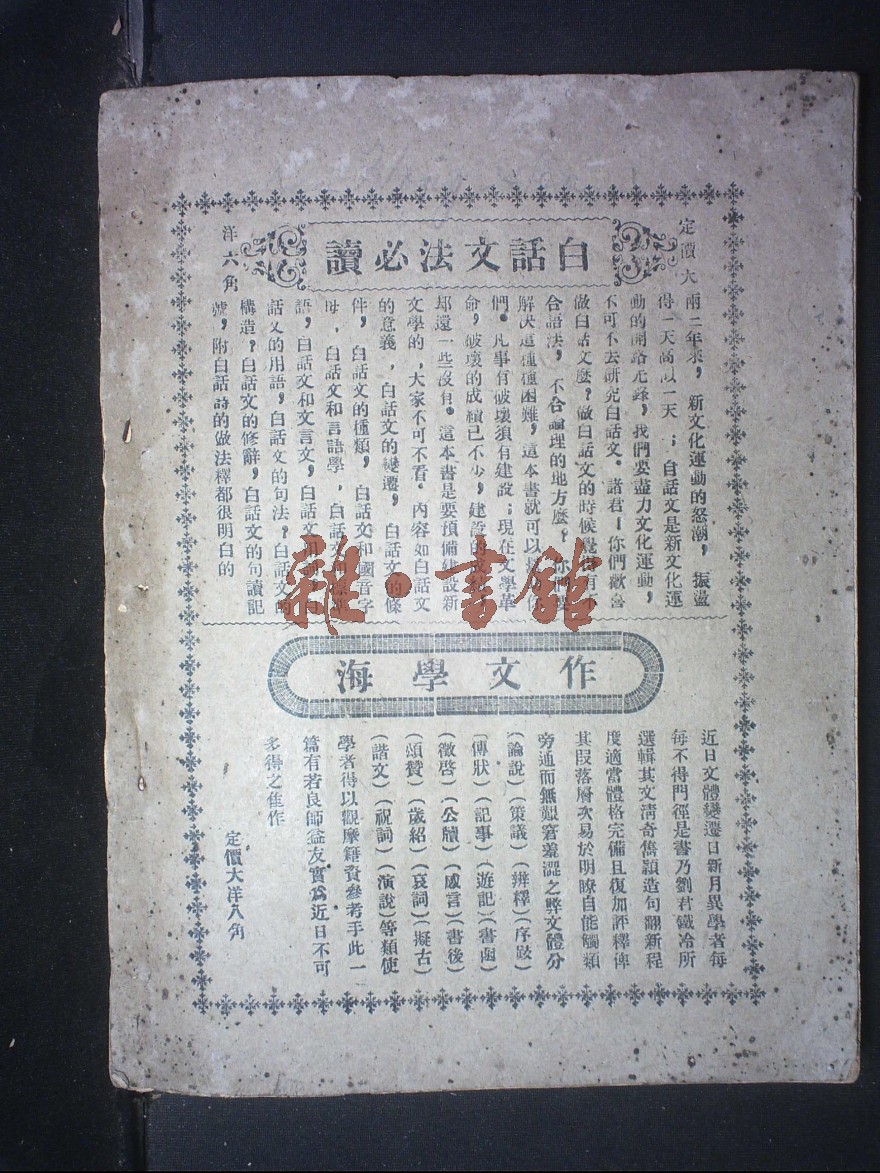 白話文法必讀
定價大
洋六角
兩三年來，新文化運動的怒潮，振盪
得一天高似一天；白話文是新文化運
動的開路先鋒，我們要盡力文化運動，
不可不去研究白話文。諸君！你們歡喜
做白話文麼？做白話文的時候覺得有不
合語法，不合論理的地方麼？你們要
解決這種種困難，這本書就可以
們。凡事有破壞須有建設；現在文學革
命，破壞的成績已不少，建設的成績
却還一些沒有。這本書是要預備建設新
文學的，大家不可不看。內容如白話文
的意義，白話文的變遷，白話文的條
件，白話文的種類，白話文和國音字
母，白話文和言語學，白話文和標準
語，白話文和文言文，白話文
話文的用語，白話文的句法？白話文的
構造？白話文的修辭，白話文的句讀記
號，附白話詩的做法釋都很明白的
雜·書館
作文學海
近日文體變遷日新月異學者每
每不得門徑是書乃劉君鐵冷所
選輯其文清奇雋穎造句翻新程
度適當體格完備且復加評釋俾
其段落層次易於明瞭自能觸類
旁通而無艱窘羞澀之弊文體分
（論說）（策議）（辨釋）（序跋）
（傳狀）（記事）（遊記）（書函）
（徵啓）（公牘）（感言）（書後）
（頌贊）（箴紹）（哀詞）（擬古）
（諧文）（祝詞）（演說）等類使
學者得以觀摩籍資參考手此一
篇有若良師益友實爲近日不可
多得之佳作
定價大洋八角